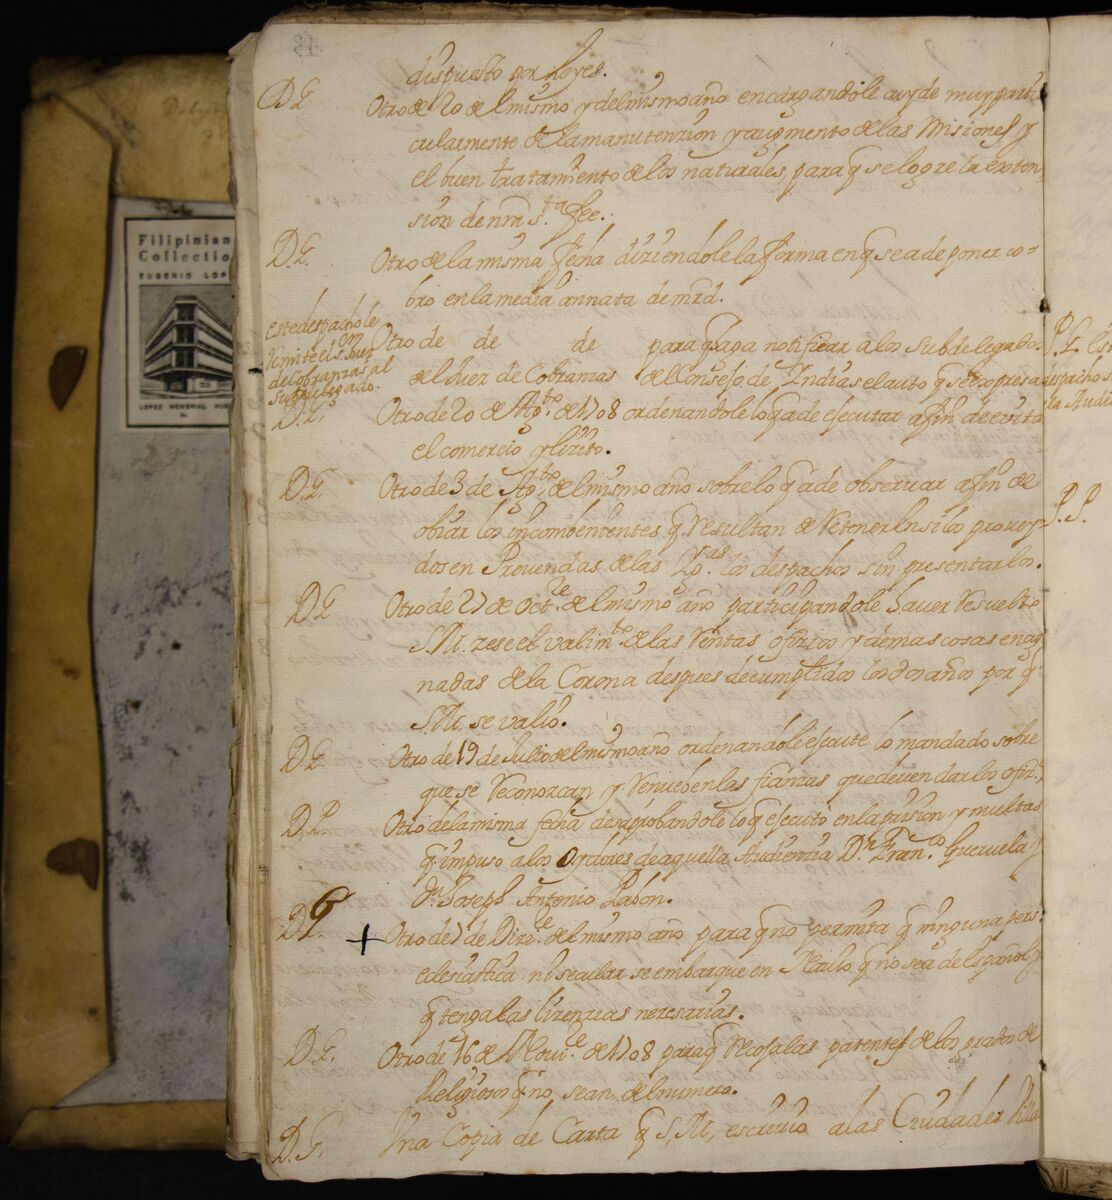 dispuesto por leyes.
D. G. Otro de 20 del mismo y del mismo año encargandole cuyde muy parti
cularmente de la manutenzion y augmento de las Misiones y
el buen tratamiento de los naturales, para q se logre la exten
sion de nrã s.ta fee.
D. G. Otro de la misma fecha diziendole la forma en q se a de poner co-
bro en la media annata de mrd.
Este despacho le
remite el s. Juez
de Cobranzas, al
subdelegado.
Otro de de de para q haga notificar a los subdelegados
del Juez de Cobranzas del Consejo, de Indias el auto q se expresa
D. G. Otro de 20 de Ag.to de 1708 ordenandole lo q a de executar a fin de evitar
el comercio ylizito.
D. G. Otro de 3 de Ag.to del mismo año sobre lo q a de observar a fin de
obiar los incombenientes q resultan de retener en si los provey
dos en Prevendas de las Yg.as los despachos sin presentarlos.
D. G. Otro de 27 de Oct.e del mismo año participandole haver resuelto
S. M. zese el valim.to de las rentas ofizios y demas cosas enag
nadas de la Corona despues de cumplidos los dos años por q
S. M. se valio.
D. G. Otro de 19 de Julio del mismo año ordenandole execute lo mandado sobre
que se reconozcan y renueben las fianzas que deven dar los ofiz.
D. P. Otro de la misma fecha desaprobandole lo q executo en la prision y multas
q impuso a los Oydores de aquella Audienzia D.n Fran.co Gueruela y
D.n Joseph Antonio Pabon.
D. G. + Otro de 7 de Diz.e del mismo año para q no permita q ninguna pers.
eclesiastica ni secular se embarque en Navio q no sea de Español y
q tenga las lizenzias nezesarias.
D. G. Otro de 16 de Nov.e de 1708 para q recoja las patentes de los grados de
Religiosos q no sean del numero.
D. G. Una Copia de Carta q S. M. escrivio a las Ciudades Villa
Filipinian
Collectio
EUGENIO LOP
LOPEZ MEMORIAL MUS
despacho s
la Audi
P. P.